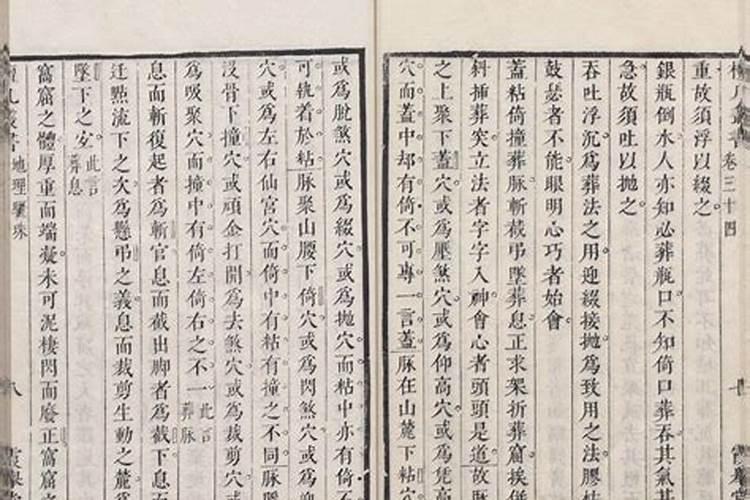 卷三十四
重故須浮以綴之
銀瓶倒水人亦知必葬瓶口不知倚口葬吞其氣
急故須吐以拋之
吞吐浮沉為葬法之用迎綴接拋為致用之法膠柱
鼓瑟者不能眼明心巧者始會
蓋粘倚撞葬脈斬截弔墜葬息正求架折葬窟挨併
斜插葬突立法者字字入神會心者頭頭是道故脈
之上聚下蓋穴或為壓煞穴或為仰高穴或為凭高
穴而蓋中却有倚不可專一言蓋脈在山麓下粘穴
或為脫煞穴或為綴穴或為拋穴而粘中亦有倚
可執着於粘脈聚山腰下倚穴或為閃煞穴或為
穴或為左右仙宮穴而倚中有粘有撞之不同脈
沒骨下撞穴或頑金打開為去煞穴或為裁剪穴
為吸聚穴而撞中有倚左倚右之不一此言葬脈
息而斬復起者為斬官息而截出脚者為截下息
迂㸃流下之次為懸弔之義息而裁剪生動之麓
墜下之安此言葬息
窩窟之體厚重而端凝未可泥棲閃而廢正窩窟
地理驪珠
八